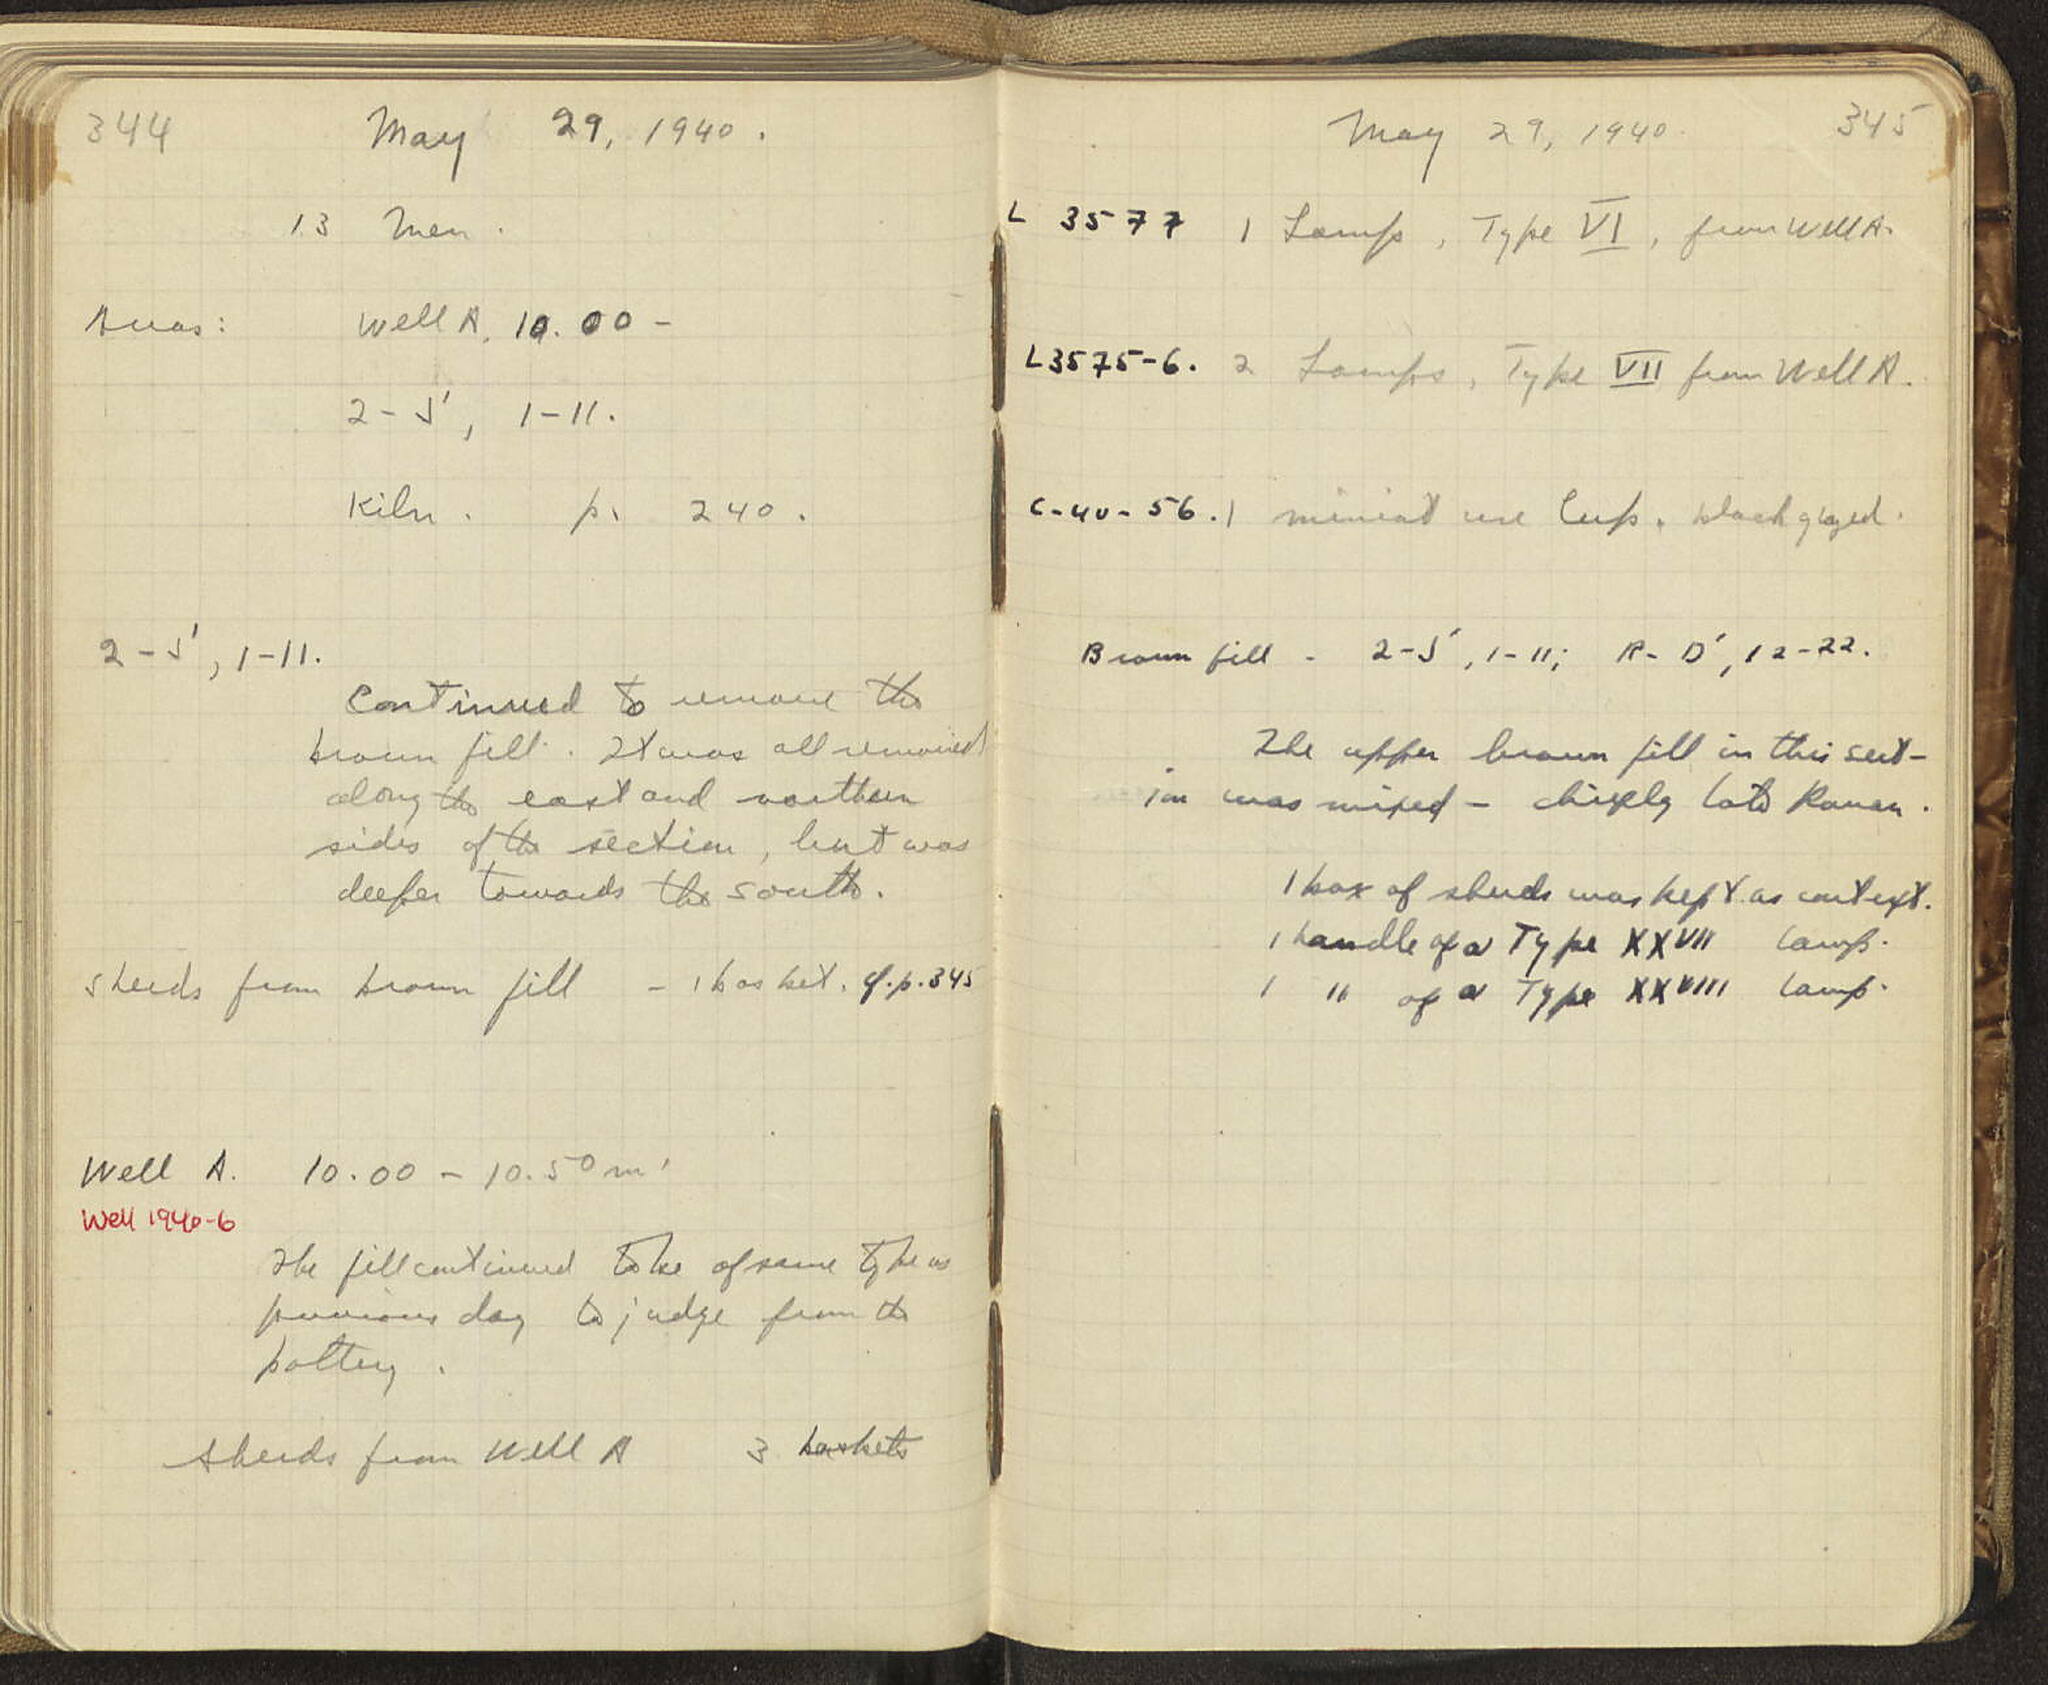 344
May 29, 1940.
13 Men.
Areas: Well A, 10.00 -
2-J', 1-11.
Kiln. p. 240.
2-J', 1-11.
Continued to remove the
brown fill. It was all removed
along the east and northern
sides of the section, but was
deeper towards the south.
Sherds from brown fill - 1 basket. cf. p. 345
Well A. 10.00 - 10.50 m.
Well 1940-6
The fill continued to be of same type as
previous day to judge from the
pottery.
Sherds from Well A 3 baskets
May 29, 1940. 345
L 3577 1 Lamp, Type VI, from Well A.
L3575-6. 2 Lamps, Type VII from Well A.
C-40-56. 1 miniature Cup, black glazed.
Brown fill - 2-J', 1-11; R-D', 12-22.
The upper brown fill in this sect-
ion was mixed - chiefly late Roman.
1 box of sherds was kept as context.
1 handle of a Type XXVII Lamp.
1 " of a Type XXVIII Lamp.